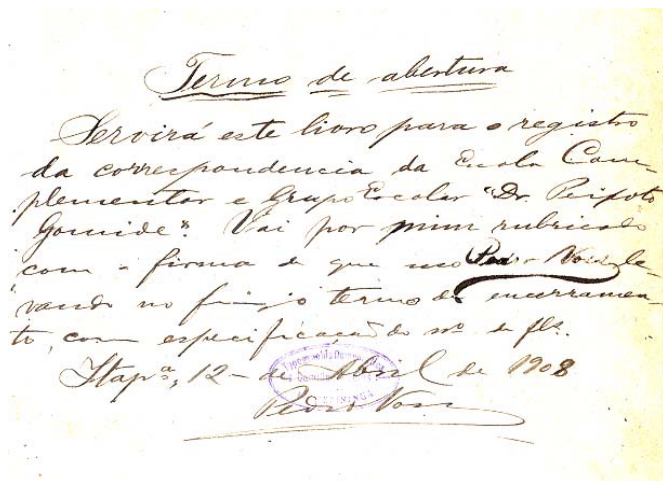 Termo de abertura
Servirá este livro para o registro
da correspondencia da Escola Com-
plementar e Grupo Escolar "Dr. Peixoto
Gomide". Vai por mim rubricado
com a firma de que uso Pedro Voss, le-
vando no fim o termo de encerramen-
to, com especificação do nº de fls.
Itapª, 12 - de Abril de 1908
Pedro Voss